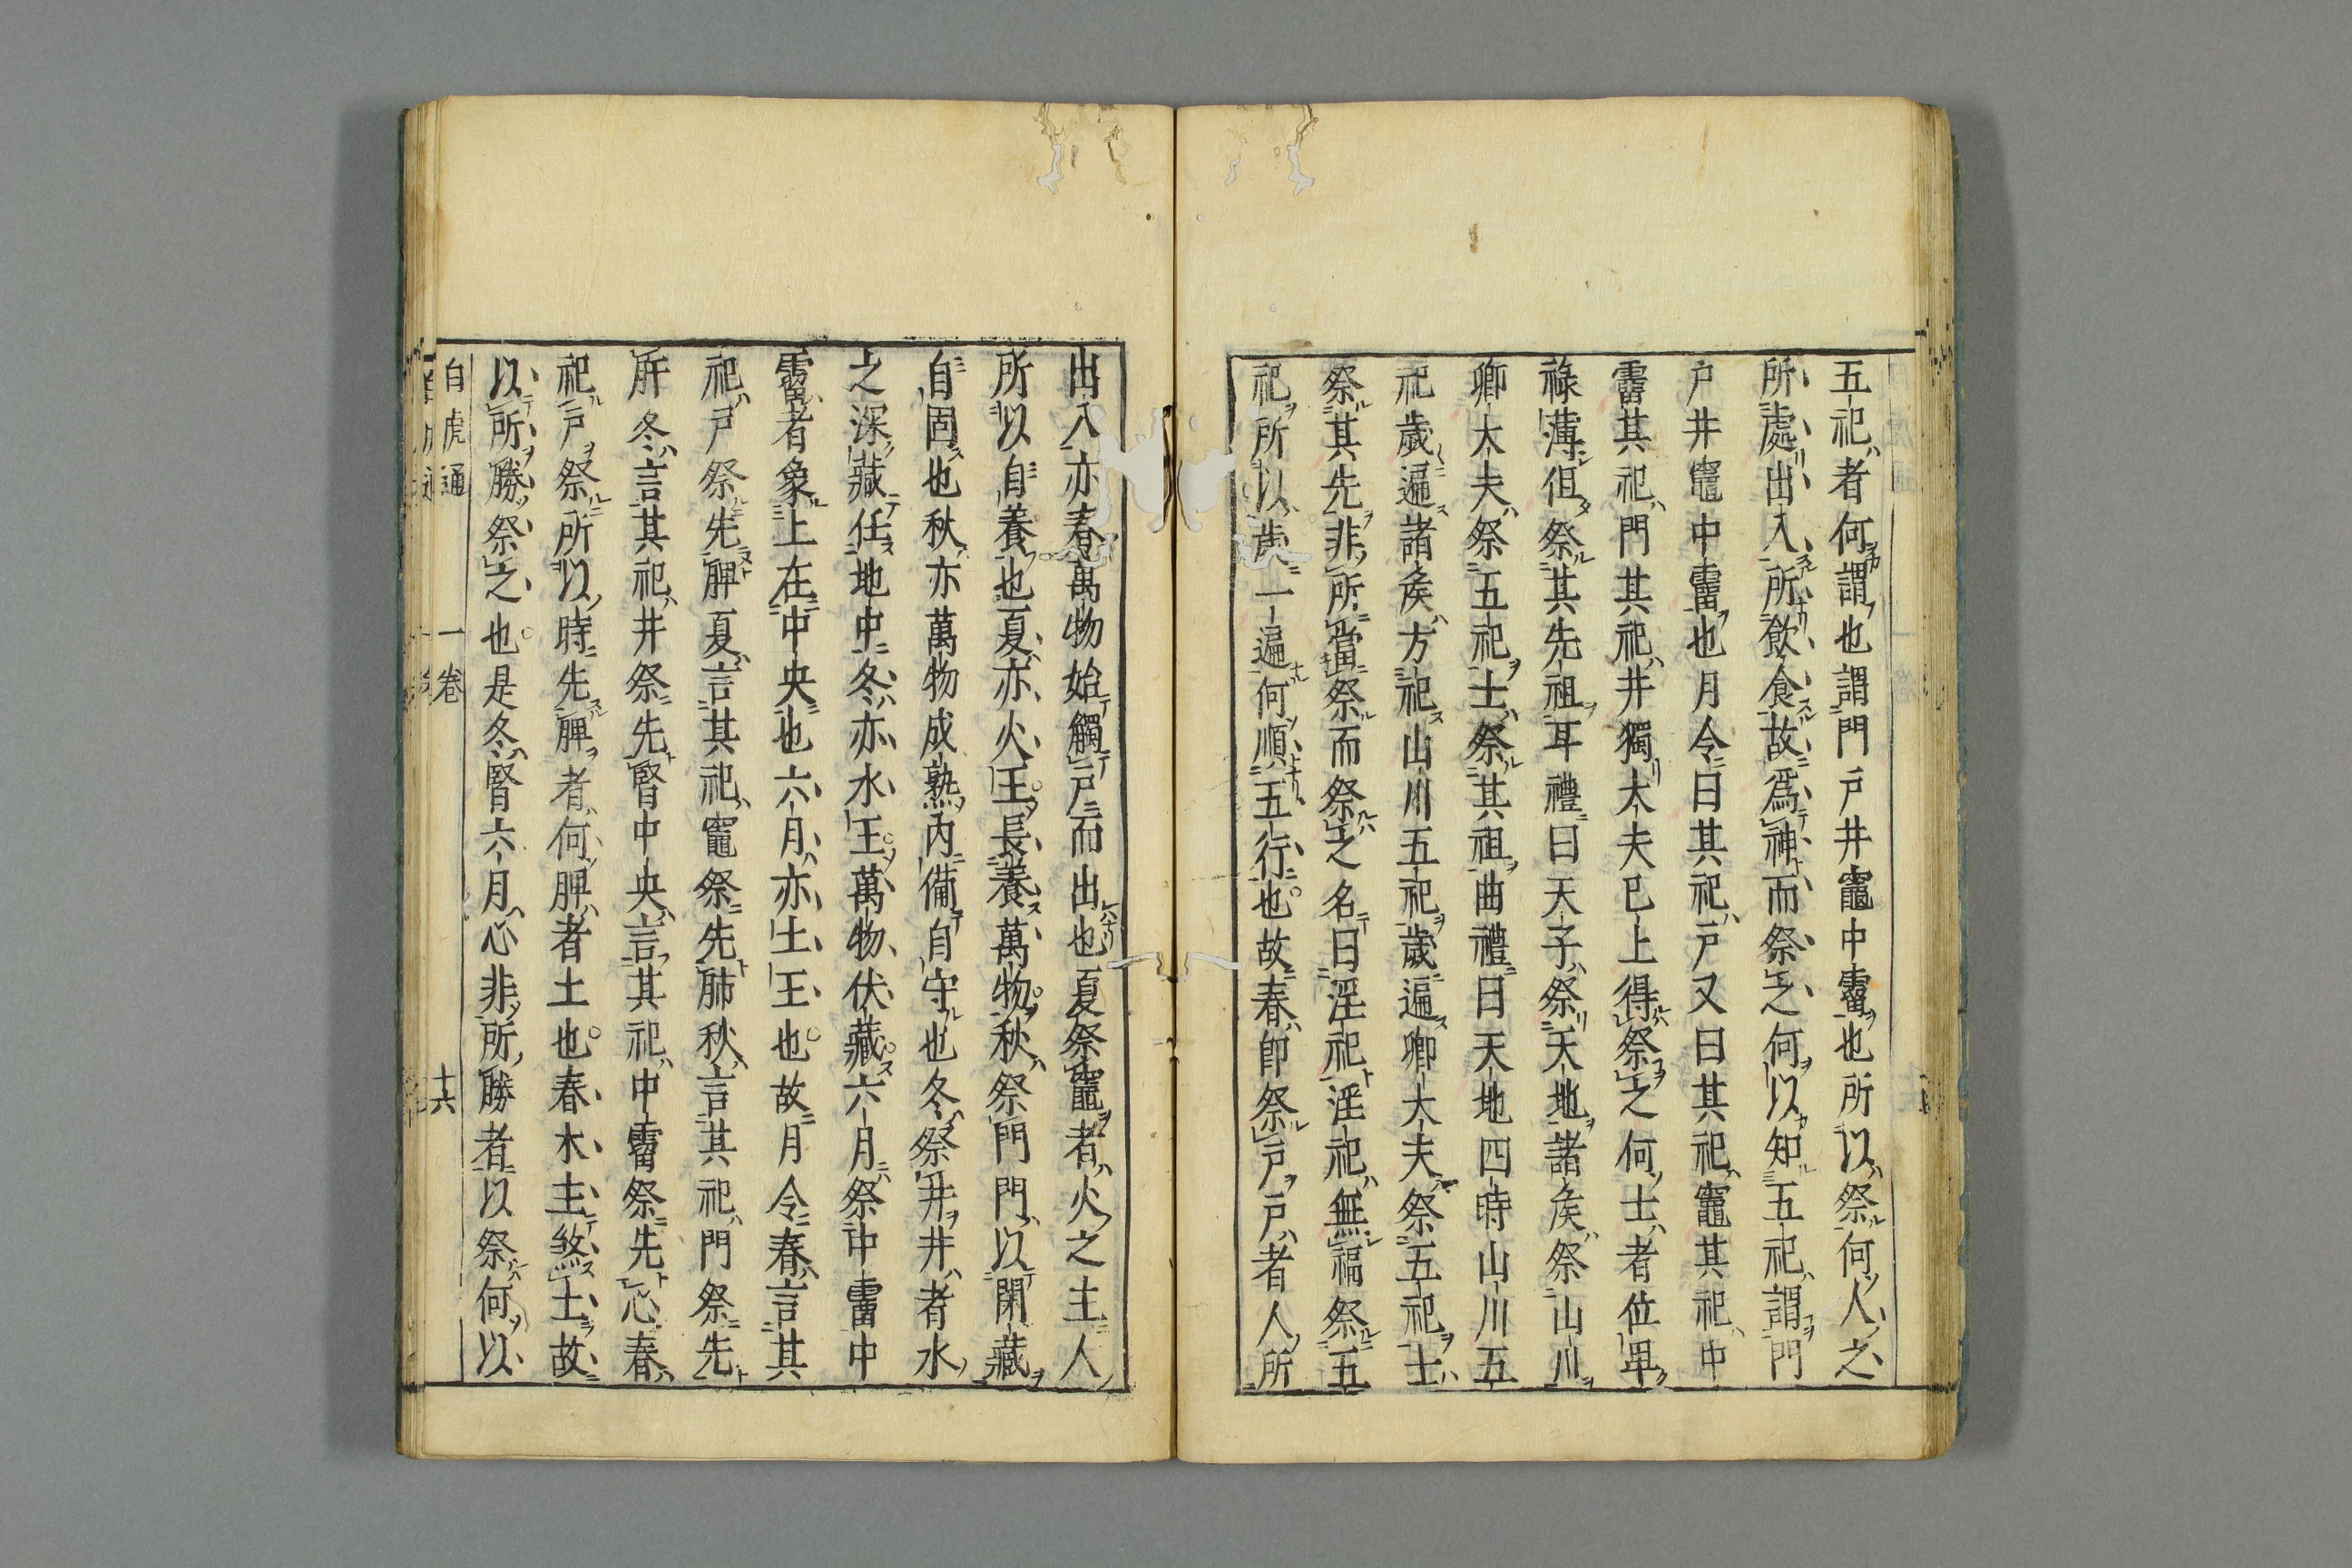 五祀者何謂也謂門戸井竈中霤也所以祭何人之
所處出入所飲食故爲神而祭之何以知五祀謂門
戸井竈中霤也月令曰其祀戸又曰其祀竈其祀中
霤其祀門其祀井獨大夫已上得祭之何士者位卑
祿薄但祭其先祖耳禮曰天子祭天地諸矦祭山川
卿大夫祭五祀士祭其祖曲禮曰天地四時山川五
祀歲遍諸矦方祀山川五祀歲遍卿大夫祭五祀士
祭其先非所當祭而祭之名曰淫祀淫祀無福祭五
祀所以歲一遍何順五行也故春卽祭戸戸者人所
出入亦春萬物始觸戸而出也夏祭竈者火之主人
所以自養也夏亦火王長養萬物秋祭門門以閉藏
自固也秋亦萬物成熟內備自守也冬祭井井者水
之深藏任地中冬亦水王萬物伏藏六月祭中霤中
霤者象上在中央也六月亦土王也故月令春言其
祀戸祭先脾夏言其祀竈祭先肺秋言其祀門祭先
肝冬言其祀井祭先腎中央言其祀中霤祭先心春
祀戸祭所以時先脾者何脾者土也春木主煞土故
以所勝祭之也是冬腎六月心非所勝者以祭何以
白虎通 一卷 十六